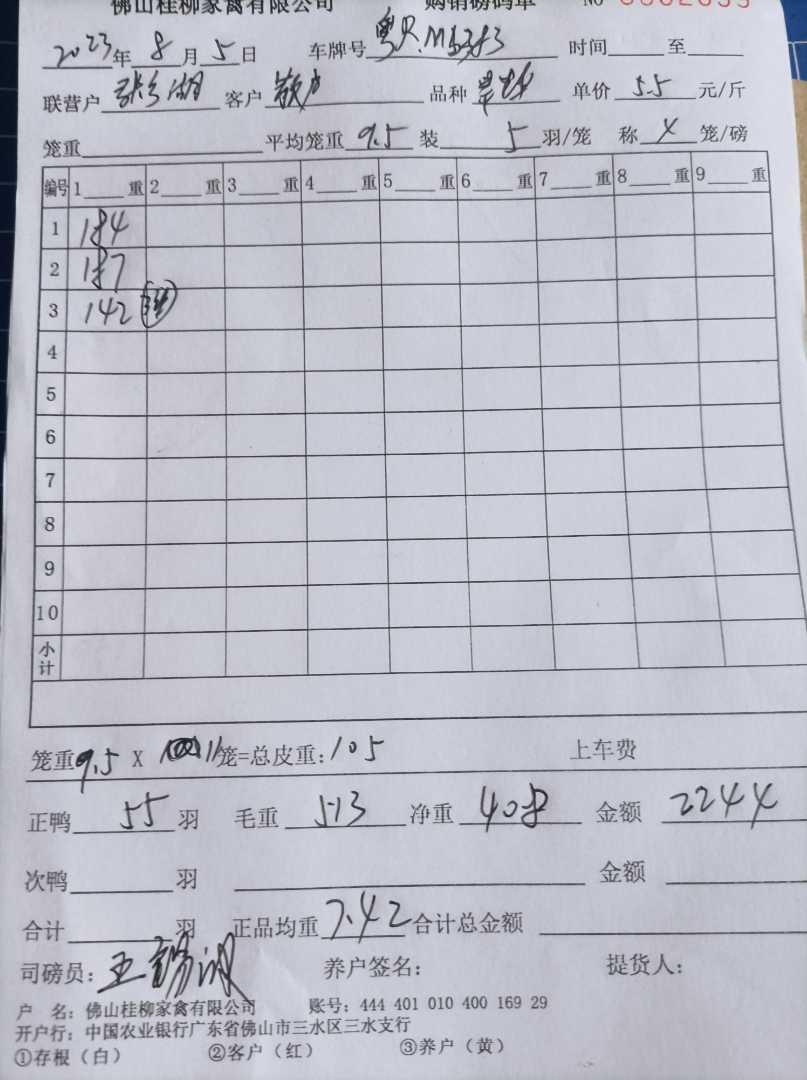 佛山桂柳家禽有限公司 购销磅码单 NO 0002059
2023年8月5日 车牌号 粤 时间 至
联营户 客户 散户 品种 单价 5.5 元/斤
笼重 平均笼重 9.5 装 5 羽/笼 称 4 笼/磅
编号 1 重 2 重 3 重 4 重 5 重 6 重 7 重 8 重 9 重
1 184
2 187
3 142
4
5
6
7
8
9
10
小计
笼重 9.5 X 11笼=总皮重:105 上车费
正鸭 55 羽 毛重 513 净重 408 金额 2244
次鸭 羽 金额
合计 羽 正品均重 7.42 合计总金额
司磅员: 王 养户签名: 提货人:
户 名: 佛山桂柳家禽有限公司 账号: 444 401 010 400 169 29
开户行: 中国农业银行广东省佛山市三水区三水支行
①存根（白） ②客户（红） ③养户（黄）